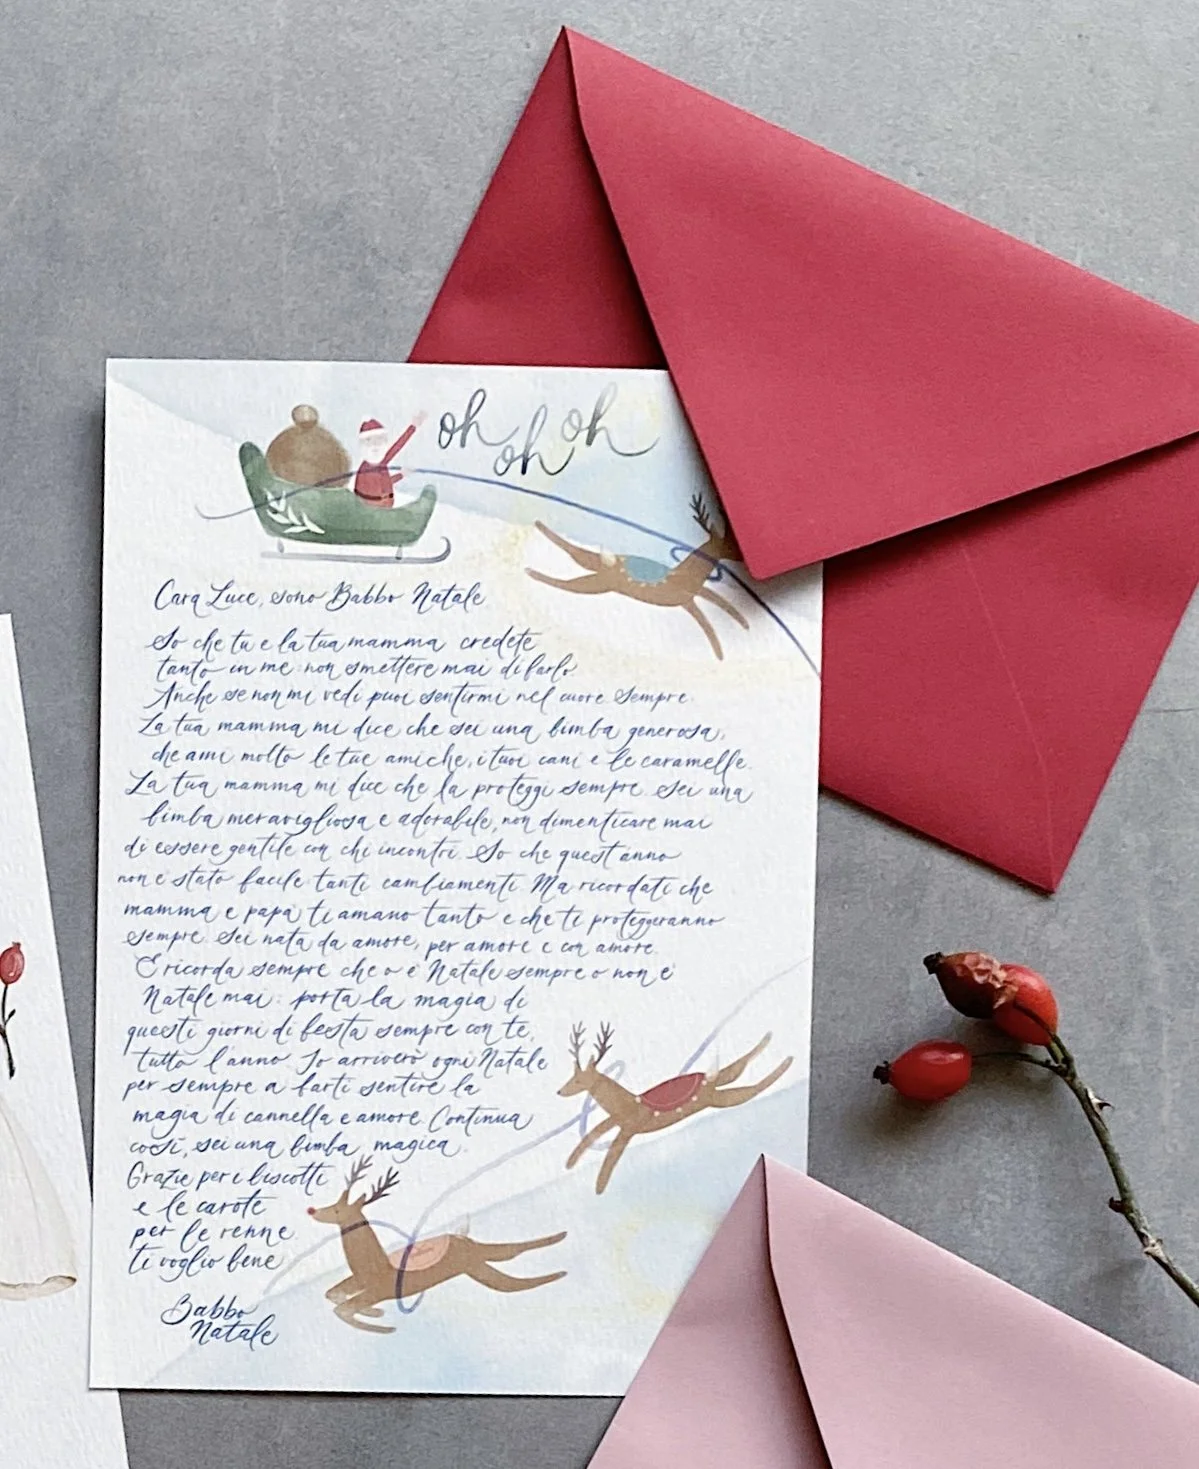 oh oh oh
Cara Luce, sono Babbo Natale
So che tu e la tua mamma credete
tanto in me: non smettere mai di farlo.
Anche se non mi vedi puoi sentirmi nel cuore. Sempre.
La tua mamma mi dice che sei una bimba generosa,
che ami molto le tue amiche, i tuoi cani e le caramelle.
La tua mamma mi dice che la proteggi sempre. Sei una
bimba meravigliosa e adorabile, non dimenticare mai
di essere gentile con chi incontri. So che quest'anno
non è stato facile: tanti cambiamenti. Ma ricordati che
mamma e papà ti amano tanto e che ti proteggeranno
sempre. Sei nata da amore, per amore e con amore.
E ricorda sempre che o è Natale sempre o non è
Natale mai: porta la magia di
questi giorni di festa sempre con te,
tutto l'anno. Io arriverò ogni Natale
per sempre a farti sentire la
magia di cannella e amore. Continua
così, sei una bimba magica.
Grazie per i biscotti
e le carote
per le renne
ti voglio bene
Babbo
Natale